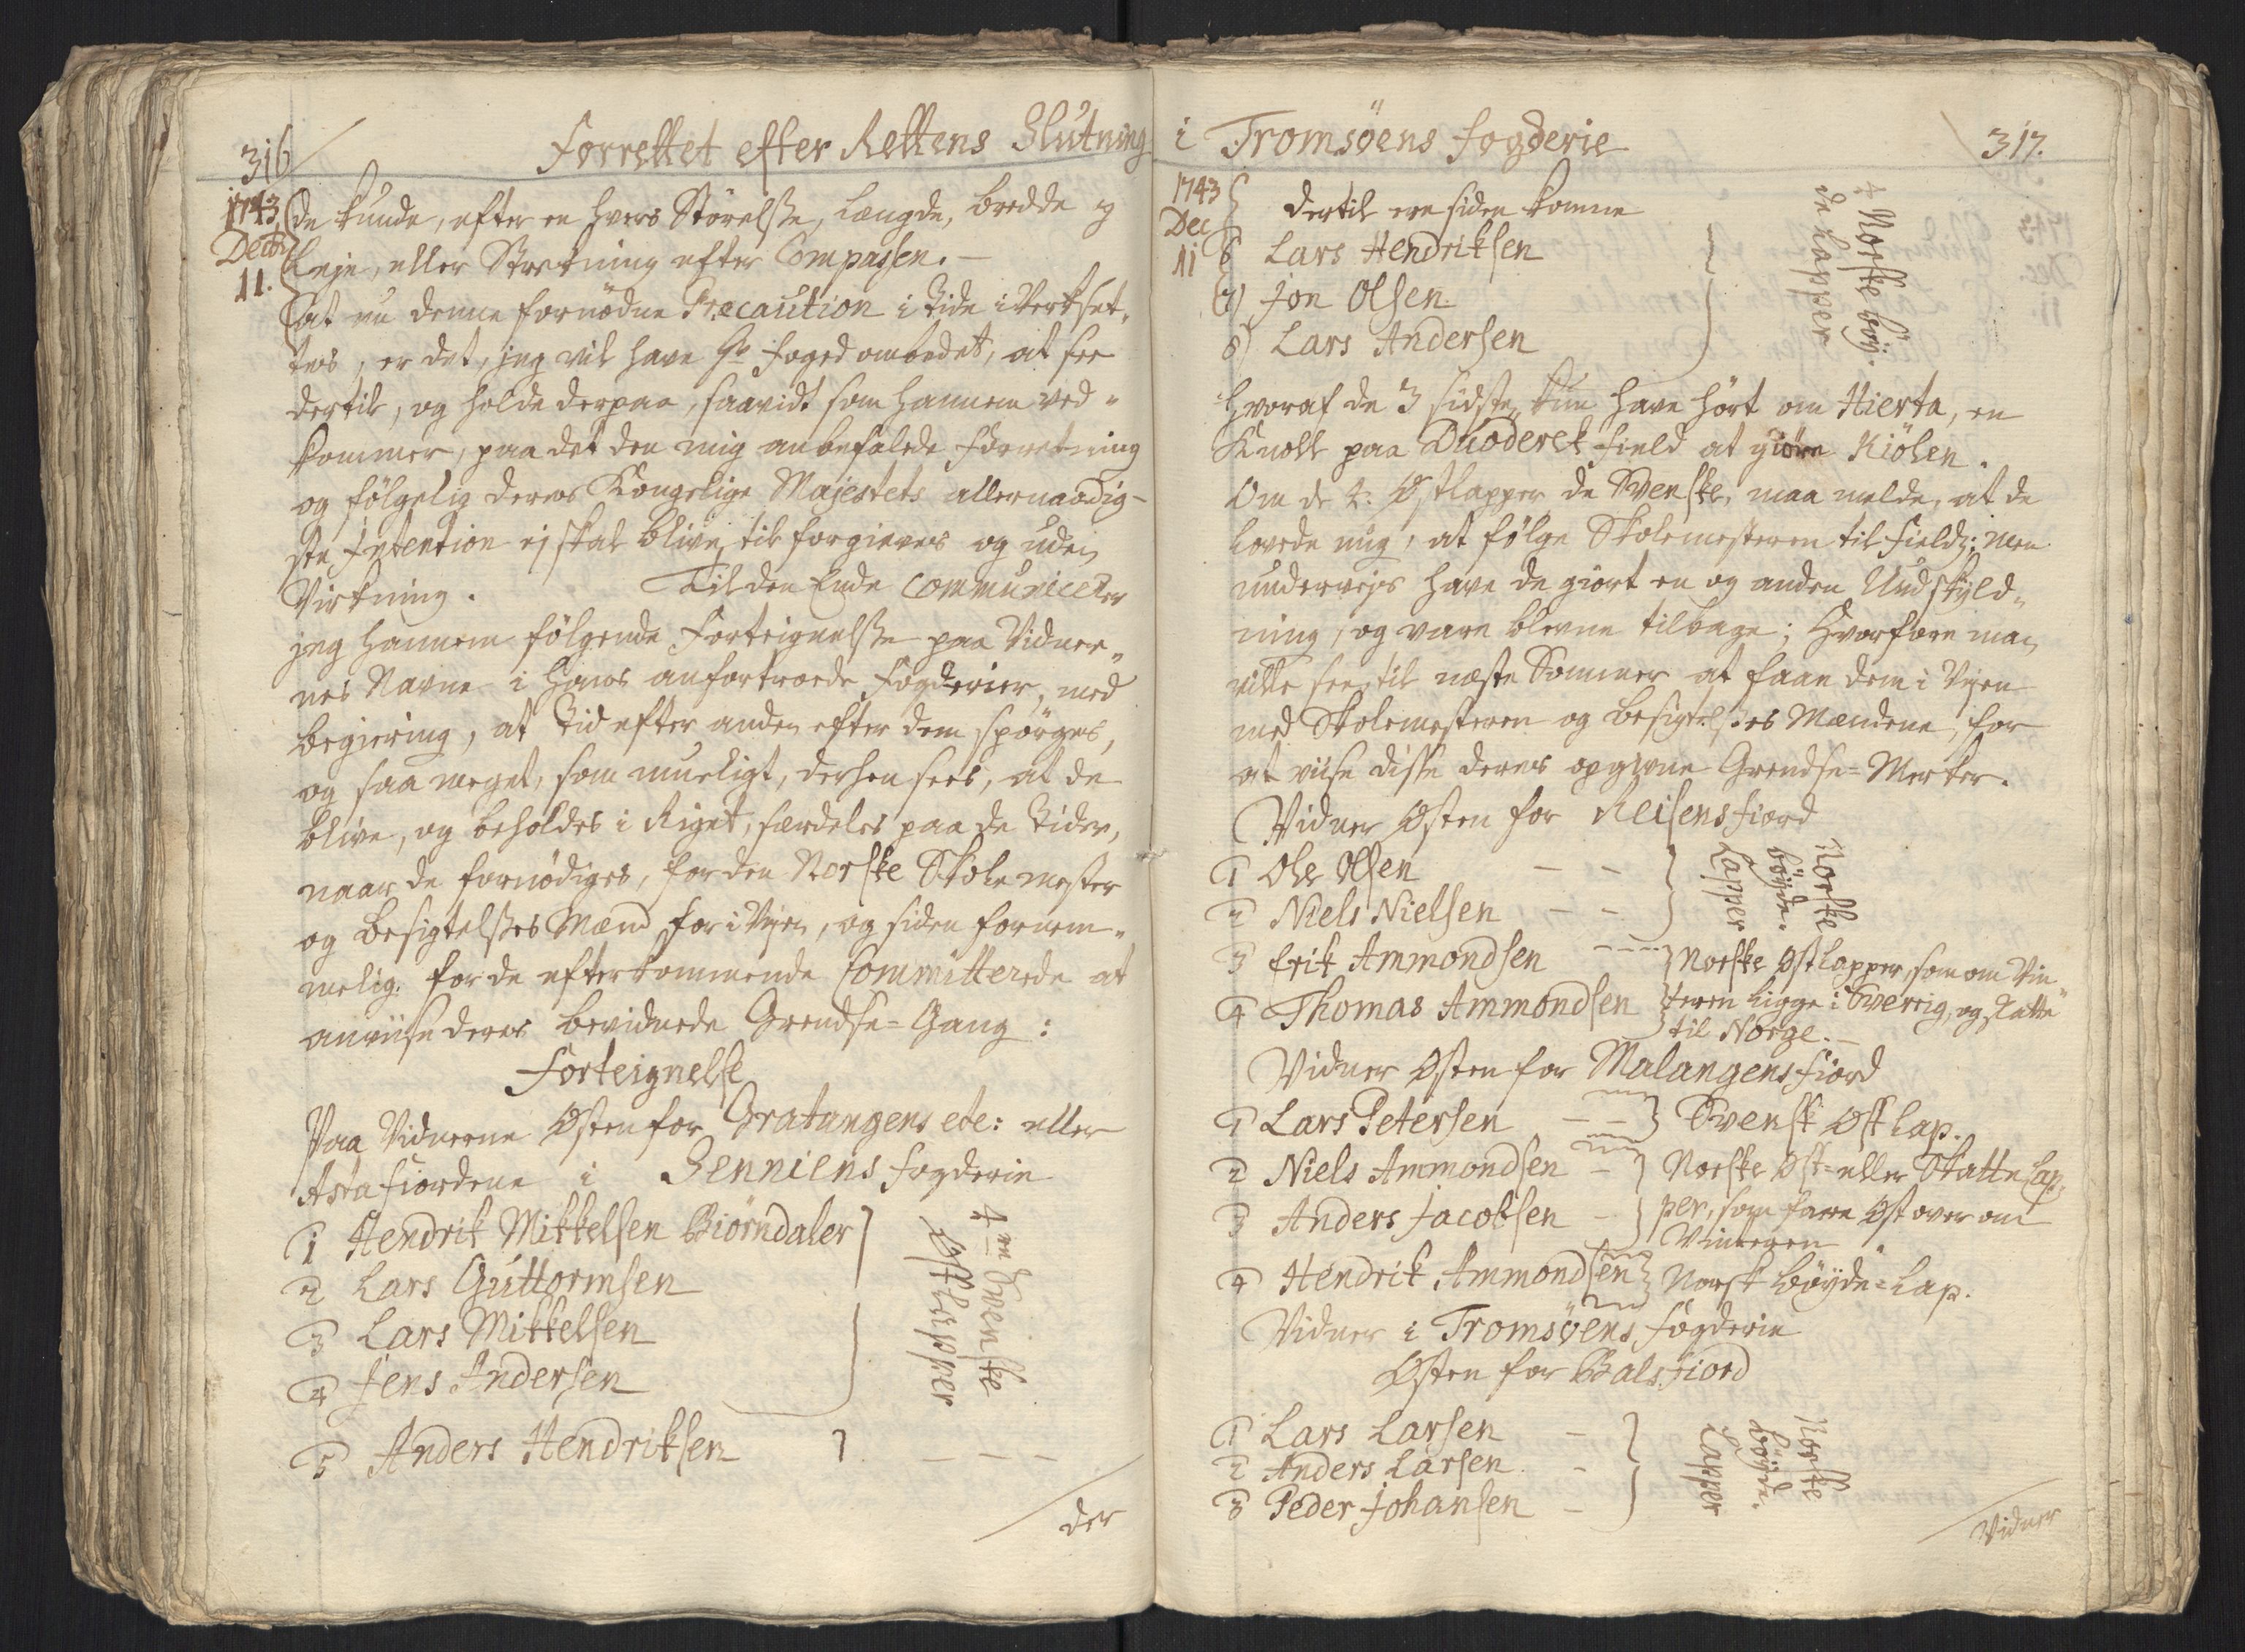 316
Forrettet efter Rettens Slutning
1743
Decbr
11.
de kunde, efter en hvers Störelsse, længde, bredde og
Leje, eller Strekning efter Compassen.
at nu denne fornødne Precaution i Tide i Verkset-
tes, er det, jeg vil have Hr. Foged ombedet, at see
dertil, og holde derpaa, saavidt som hannem ved-
kommer, paa det den mig anbefalede Forretning
og fölgelig deres Kongelige Majestets allernaadig-
ste Intention ej skal blive til forgieves og uden
Virkning. Til den Ende communicerer
jeg hannem fölgende Forteignelsse paa Vidner-
nes Navne i hans anfortroede Fogderier, med
begiering, at Tid efter anden efter dem spörges,
og saa meget, som mueligt, derhen sees, at de
blive, og beholdes i Riget, særdeles paa de Tider,
naar de fornödiges, for den Norske Skolemester
og Besigtelsses Mænd for i Vejen, og siden fornem-
melig. for de efterkommende Committerede at
anviise deres bevidnede Grendse-Gang:
Forteignelse
Paa Vidnerne Østen for Gratangens etc: eller
Astafiordene i Senniens Fogderie
1 Hendrik Mikkelsen Biörndaler
2 Lars Guttormsen
3 Lars Mikkelsen
4 Jens Andersen
4re Svenske
Østlapper
5 Anders Hendriksen
der
i Tromsöens Fogderie
317.
1743
Dec
11
dertil ere siden komne
6 Lars Hendriksen
7) Jon Olsen
8) Lars Andersen
4 Norske böy-
de Lapper
Hvoraf de 3 sidste kun have hört om Hierta, en
Knolt paa Duoderet Field at giöre Kiölen.
Om de 4: Østlapper de Svenske, maa melde, at de
lovede mig, at fölge Skolemesteren til Fields: men
undervejs have de giort en og anden Undskyld-
ning, og vare blevne tilbage; Hvorfore man
ville see til næste Sommer at faae dem i Vejen
med Skolemesteren og Besigtelsses Mændene, for
at viise disse deres opgivne Grendse-Merker.
Vidner Østen for Reisensfiord
1 Ole Olsen
2 Niels Nielsen
Norske
böyde-
Lapper
3 Erik Ammondsen
4 Thomas Ammondsen
Norske Østlapper, som om Vin-
teren ligge i Sverrig, og skatte
til Norge.
Vidner Østen for Malangensfiord
1 Lars Petersen
Svensk Øst lap.
2 Niels Ammondsen
3 Anders Jacobsen
Norske Øst- eller Skatte Lap-
per, som fare Øst over om
Vinteren
4 Hendrik Ammondsen
Norsk böyde-Lap.
Vidner i Tromsöens Fogderie
Østen for Balsfiord
1 Lars Larsen
2 Anders Larsen
3 Peder Johansen
Norske
böyde-
Lapper
Vidner